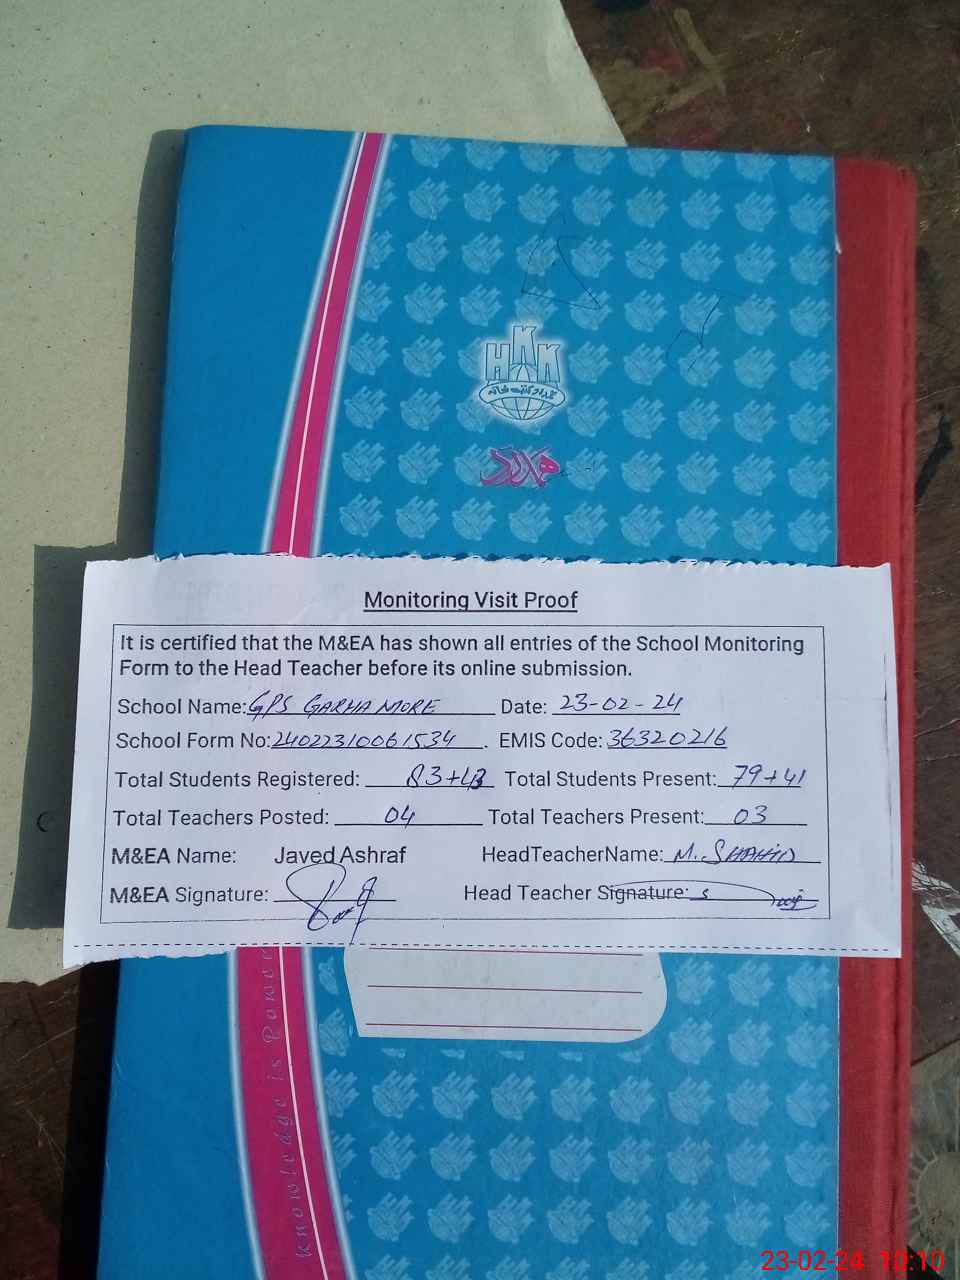 HKK
Monitoring Visit Proof
It is certified that the M&EA has shown all entries of the School Monitoring
Form to the Head Teacher before its online submission.
School Name: GPS GARHA MORE Date: 23-02-24
School Form No: 24022310061534. EMIS Code: 36320216
Total Students Registered: 83+43 Total Students Present: 79+41
Total Teachers Posted: 04 Total Teachers Present: 03
M&EA Name: Javed Ashraf HeadTeacherName: M. SHAHID
M&EA Signature: Head Teacher Signature:
knowledge is Power
23-02-24 10:10